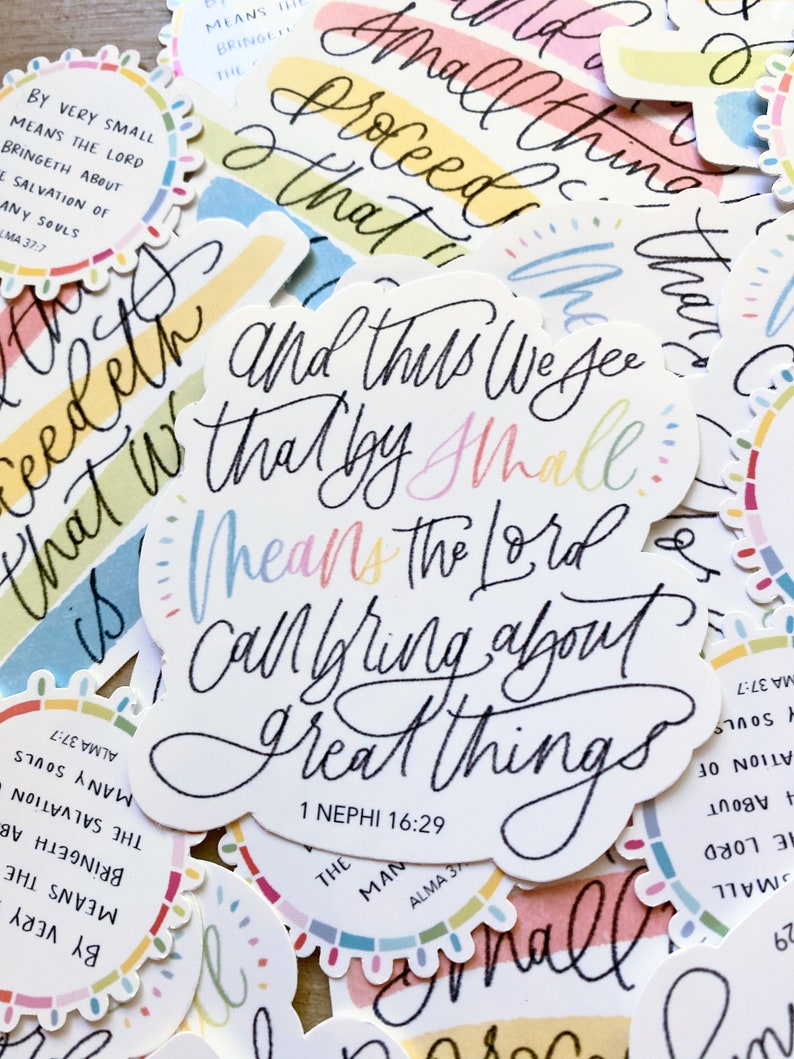 and thus we see
that by small
means the Lord
can bring about
great things
1 NEPHI 16:29
BY VERY SMALL
MEANS THE LORD
BRINGETH ABOUT
SALVATION OF
ANY SOULS
ALMA 37:7
MEANS THE
BRINGETH
THE
small thing
proceed
that
ceedeth
that w
is
that
me
BY VERY S
MEANS THE
BRINGETH ABO
THE SALVATION
MANY SOULS
ALMA 37:7
THE
MAN
ALMA 37
small
ALMA 37:7
SOULS
ATION OF
ABOUT
LORD
SMALL
:29